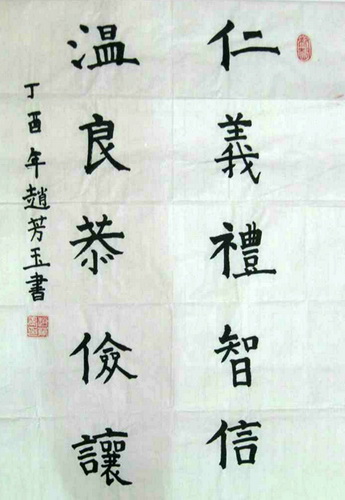 仁義禮智信
温良恭儉讓
丁酉年趙芳玉書